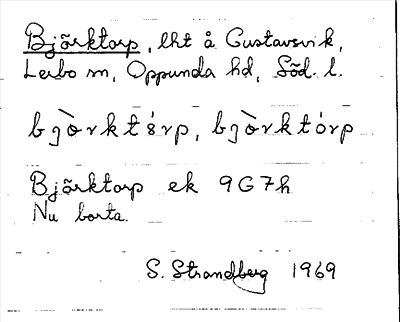 Björktorp, lht å Gustavsvik,
Lerbo sn, Oppunda hd, Söd. l.
bjò̀rktó́rp, bjò̀rktórp
Björktorp ek 9G7h
Nu borta.
S. Strandberg 1969